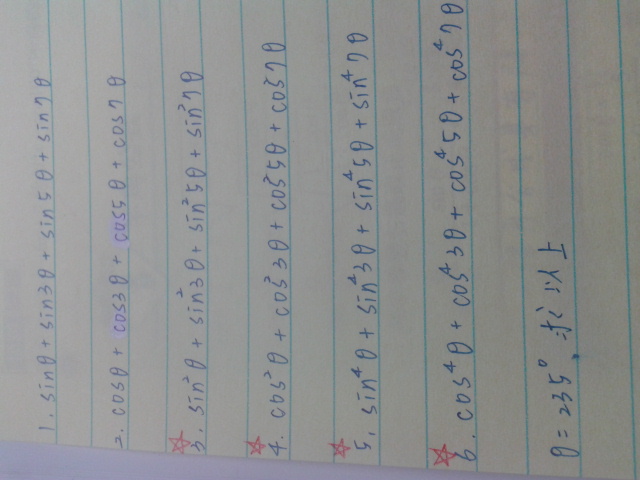 1. sinθ + sin3θ + sin5θ + sin7θ
2. cosθ + cos3θ + cos5θ + cos7θ
☆ 3. sin²θ + sin²3θ + sin²5θ + sin²7θ
☆ 4. cos²θ + cos²3θ + cos²5θ + cos²7θ
☆ 5. sin⁴θ + sin⁴3θ + sin⁴5θ + sin⁴7θ
☆ 6. cos⁴θ + cos⁴3θ + cos⁴5θ + cos⁴7θ
θ = 235°, 求以上